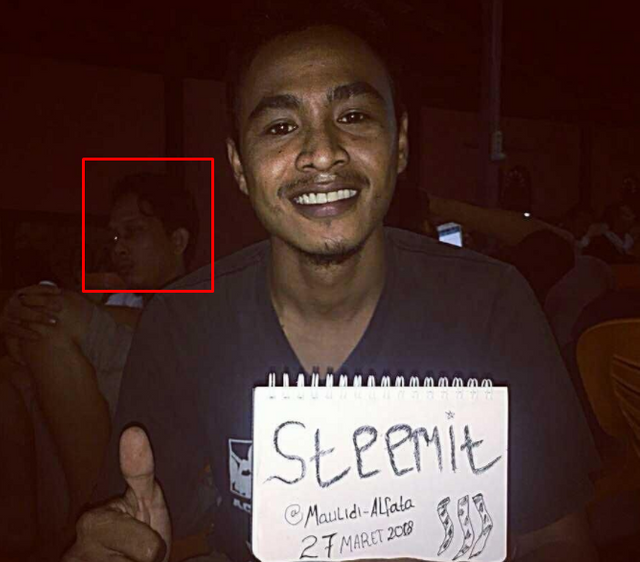 Steemit
@Maulidi-Alfata
27 MARET 2018